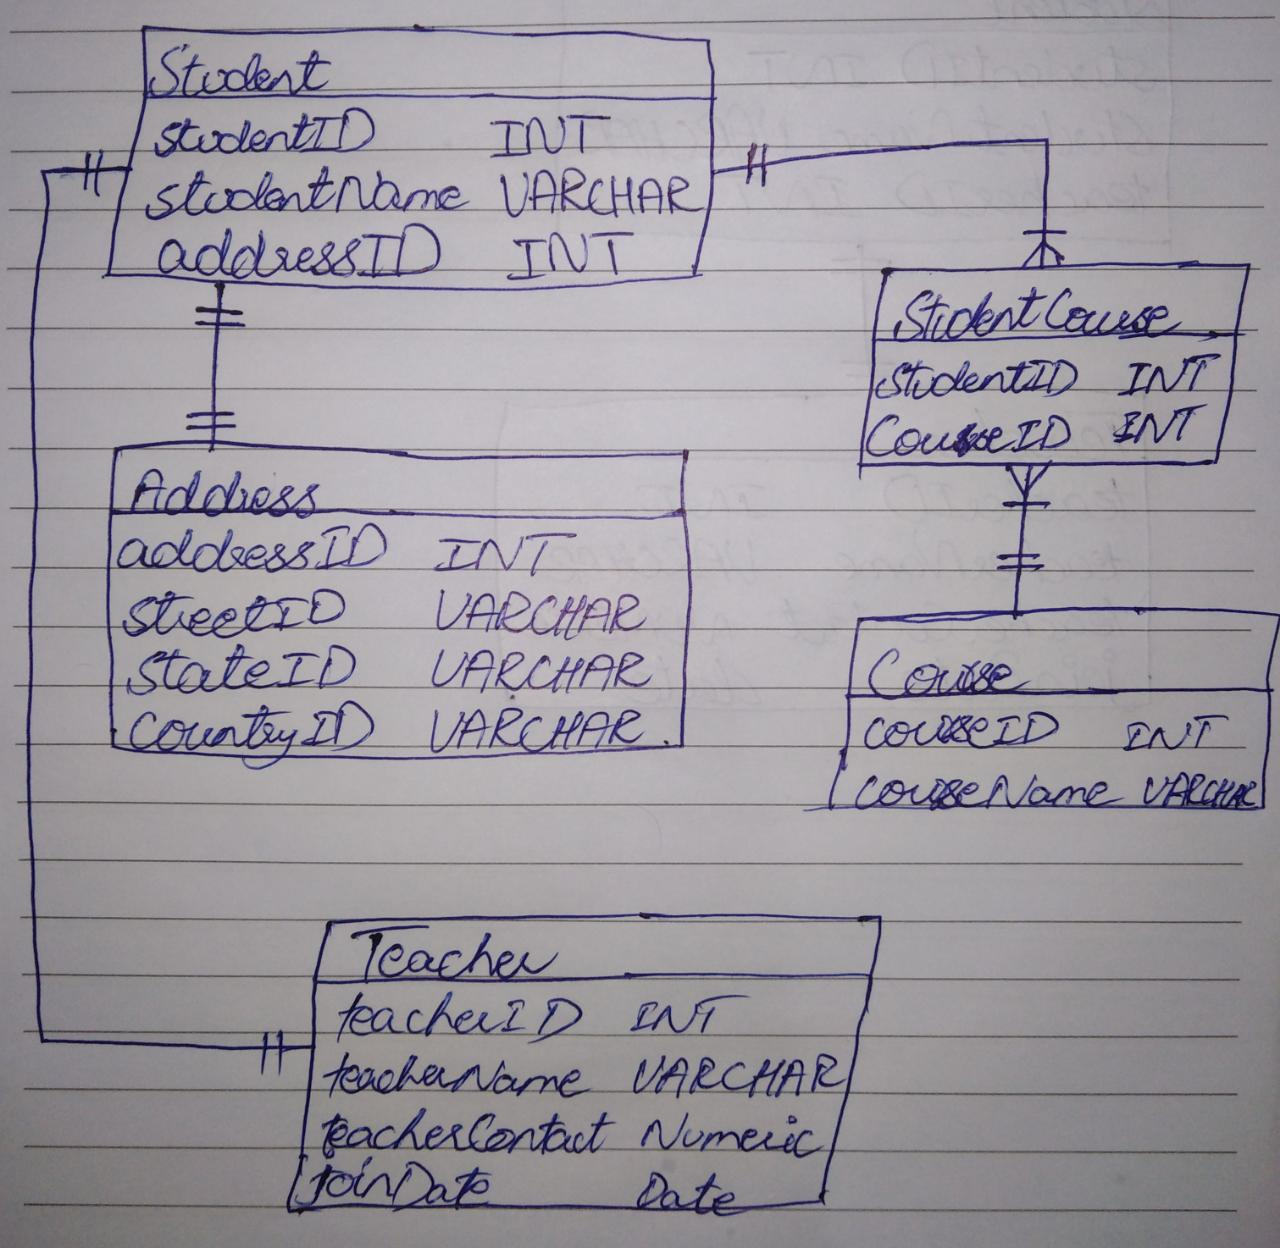 Student
studentID INT
studentName VARCHAR
addressID INT
StudentCourse
StudentID INT
CourseID INT
Address
addressID INT
streetID VARCHAR
stateID VARCHAR
countryID VARCHAR
Course
courseID INT
courseName VARCHAR
Teacher
teacherID INT
teacherName VARCHAR
teacherContact Numeric
JoinDate Date